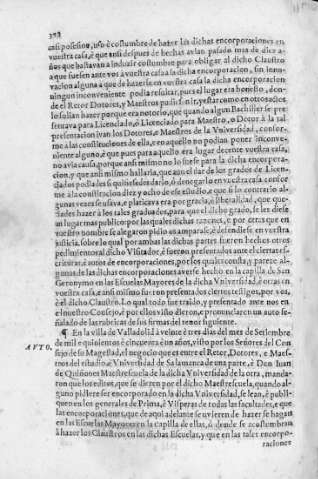 322
casi posesion, uso è costumbre de hazer las dichas encorporaciones en
vuestra casa, è que ansi despues de hechas avian pasado mas de diez a-
ños que bastavan a induzir costumbre para obligar al dicho Claustro
a que fuesen ante vos à vuestra casa a la dicha encorporacion, sin inno-
vacion alguna a que de hazerse en vuestra casa la dicha encorporacion
ningun inconveniente podia resultar, pues el lugar era honesto, don-
de el Retor Dotores, y Maestros podian ir, y estar como en otros actos
lo solian hazer porque era notorio, que quando algun Bachiller se pre-
sentava para Licenciado, è Licenciado para Maestro, o Dotor à la tal
presentacion ivan los Dotores, è Maestros de la Vniversidad, confor-
me a las constituciones de ella, en aquello no podian poner inconve-
niente alguno, è que pues para aquello era lugar decente vuestra casa,
no avia causa, porque ansi mismo no lo fuese para la dicha encorpora-
cion, y que ansi mismo hallaria, que aun el dar de los grados de Licen-
ciados podiades si quisiesedes darlo, è denegarlo en vuestra casa confor-
me a la constitucion diez y ocho de ese estudio, è que si lo contrario al-
gunas vezes se usava, è platicava era por gracia, è liberalidad, que que-
dades hazer a los tales graduados, para que el dicho grado, se les diese
en lugar mas publico por las quales dichas razones, è por otras que en
vuestro nombre se alegaron pidio os amparase, è defendiese en vuestra
justicia, sobre lo qual por ambas las dichas partes fueron hechos otros
pedimientos al dicho Visitador, è fueron presentados ante el ciertas es-
crituras, è autos de encorporaciones, por los quales consta, y parece al-
gunas de las dichas encorporaciones averse hecho en la capilla de San
Geronymo en las Escuelas Mayores de la dicha Vniversidad, è otras en
vuestra casa, è ansi mismo fueron presentados ciertos testigos, por vos,
è el dicho Claustro. Lo qual todo fue traido, y presentado ante nos en
el nuestro Consejo, è por ellos visto dieron, è pronunciaron un auto se-
ñalado de las rubricas de sus firmas del tenor siguiente.
AVTO. ¶ En la villa de Valladolid à veinte è tres dias del mes de Setiembre
de mil è quinientos è cincuenta è un años, visto por los Señores del Con
sejo de su Magestad, el negocio que es entre el Retor, Dotores, è Maes-
tros del estudio è Vniversidad de Salamanca de una parte, è Don Iuan
de Quiñones Maestrescuela de la dicha Vniversidad de la otra, manda-
ron que los editos, que se dieren por el dicho Maestrescuela, quando al-
guno pidiere ser encorporado en la dicha Vniversidad, se lean, è publi-
quen en los generales de Prima, è Visperas de todas las facultades, è que
las encorporaciones, que de aqui adelante se uvieren de hazer se hagan
en las Escuelas Mayores en la capilla de ellas, ù donde se acostumbran
à hazer los Claustros en las dichas Escuelas, y que en las tales encorpo-
raciones